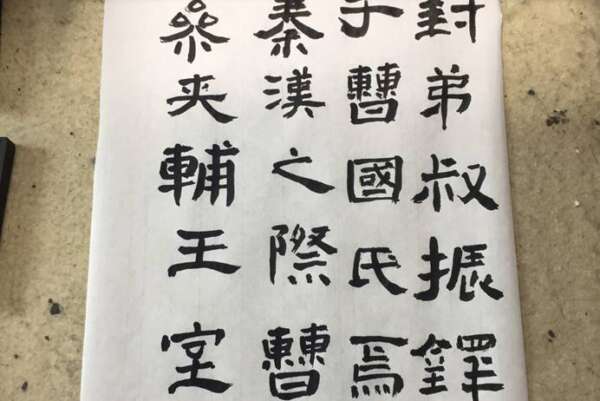 封弟叔振鐸
于曹國氏焉
秦漢之際曹
參夾輔王室